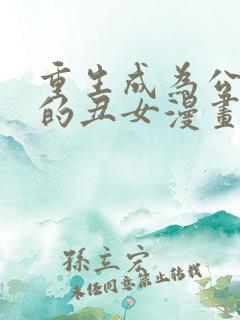 重生成為公
的丑女漫畫
孫立宏
未经同意禁止转载